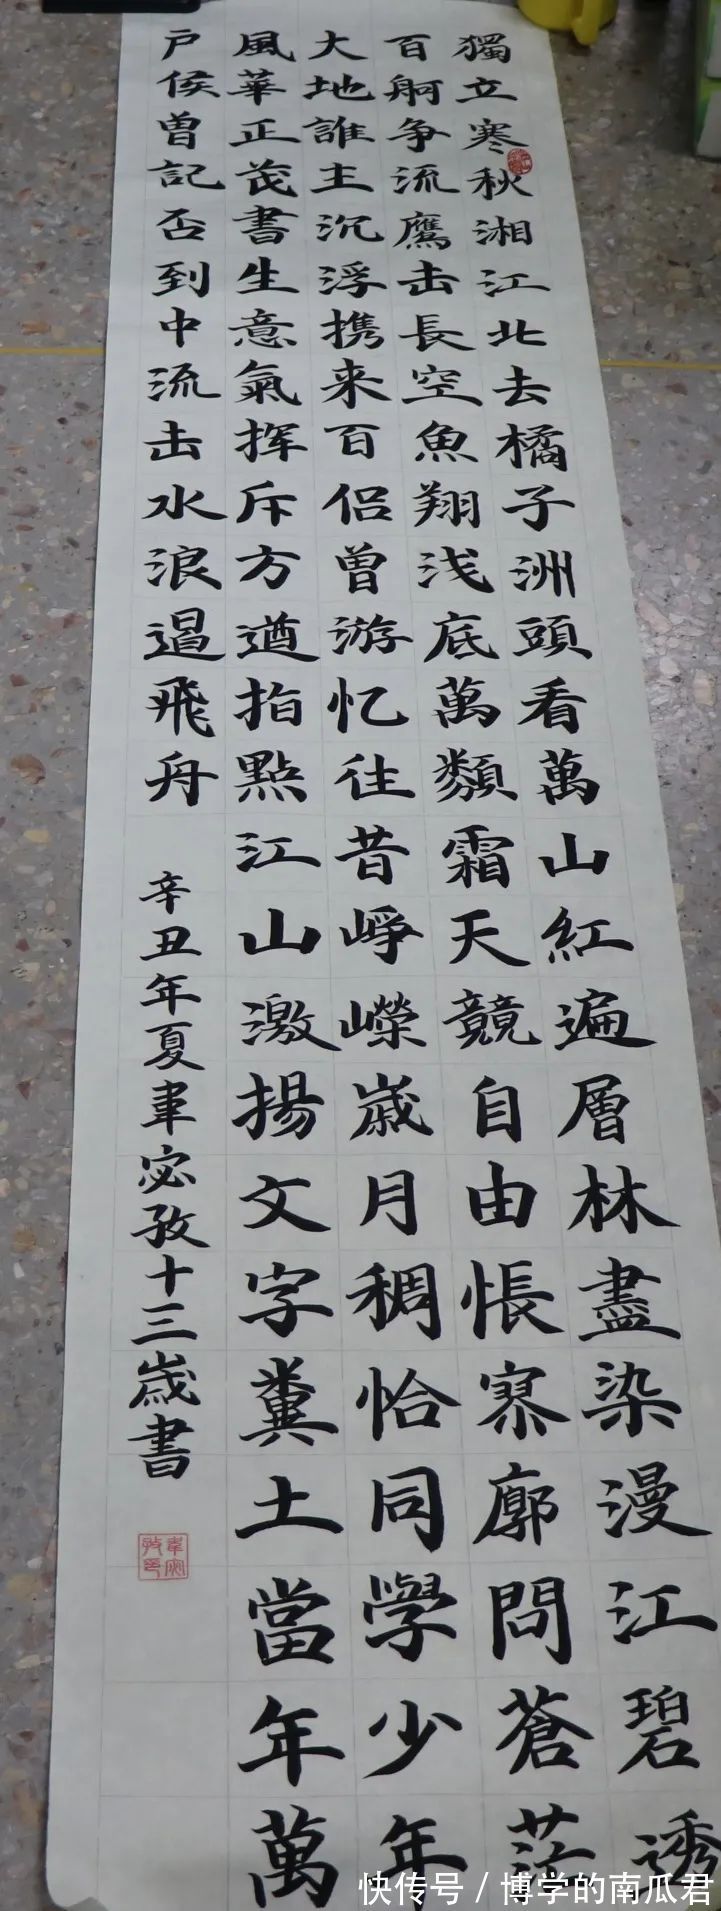 獨立寒秋湘江北去橘子洲頭看萬山紅遍層林盡染漫江碧透
百舸争流鷹击長空魚翔浅底萬類霜天競自由悵寥廓問蒼茫
大地誰主沉浮携来百侣曾游忆往昔峥嵘歲月稠恰同學少年
風華正茂書生意氣挥斥方遒指點江山激揚文字糞土當年萬
户侯曾記否到中流击水浪遏飛舟
辛丑年夏聿宓孜十三歲書
快传号/博学的南瓜君